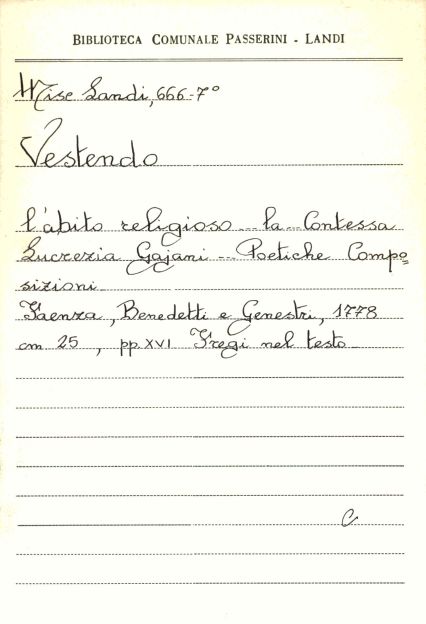 BIBLIOTECA COMUNALE PASSERINI - LANDI
Misc Landi, 666-7°
Vestendo
l'abito religioso ... la Contessa
Lucrezia Gajani ... Poetiche Compo=
sizioni
Faenza, Benedetti e Genestri, 1778
cm 25, pp. XVI Fregi nel testo
C